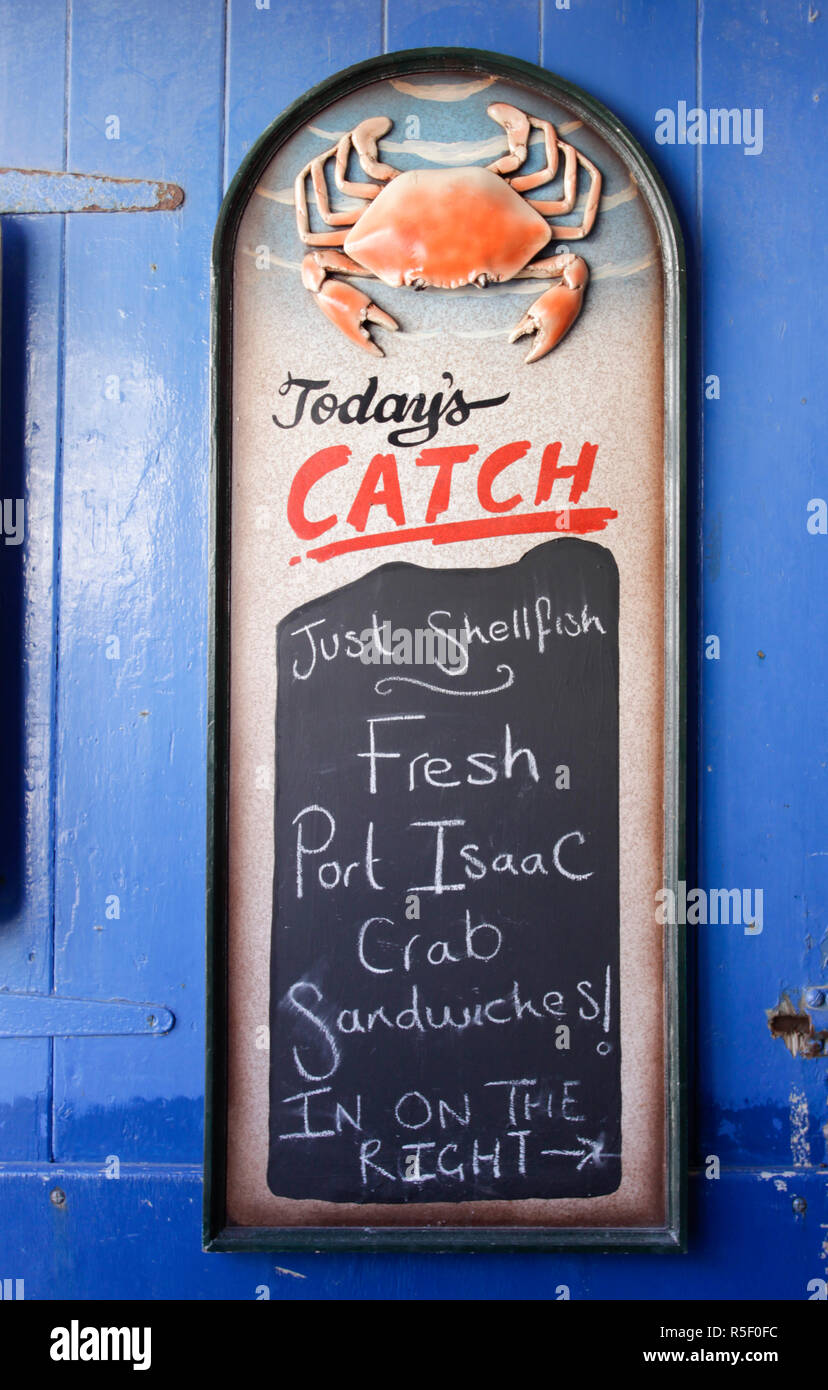 Today's
CATCH
Just Shellfish
Fresh
Port Isaac
Crab
Sandwiches!
IN ON THE
RIGHT →
alamy
Image ID: R5F0FC
www.alamy.com